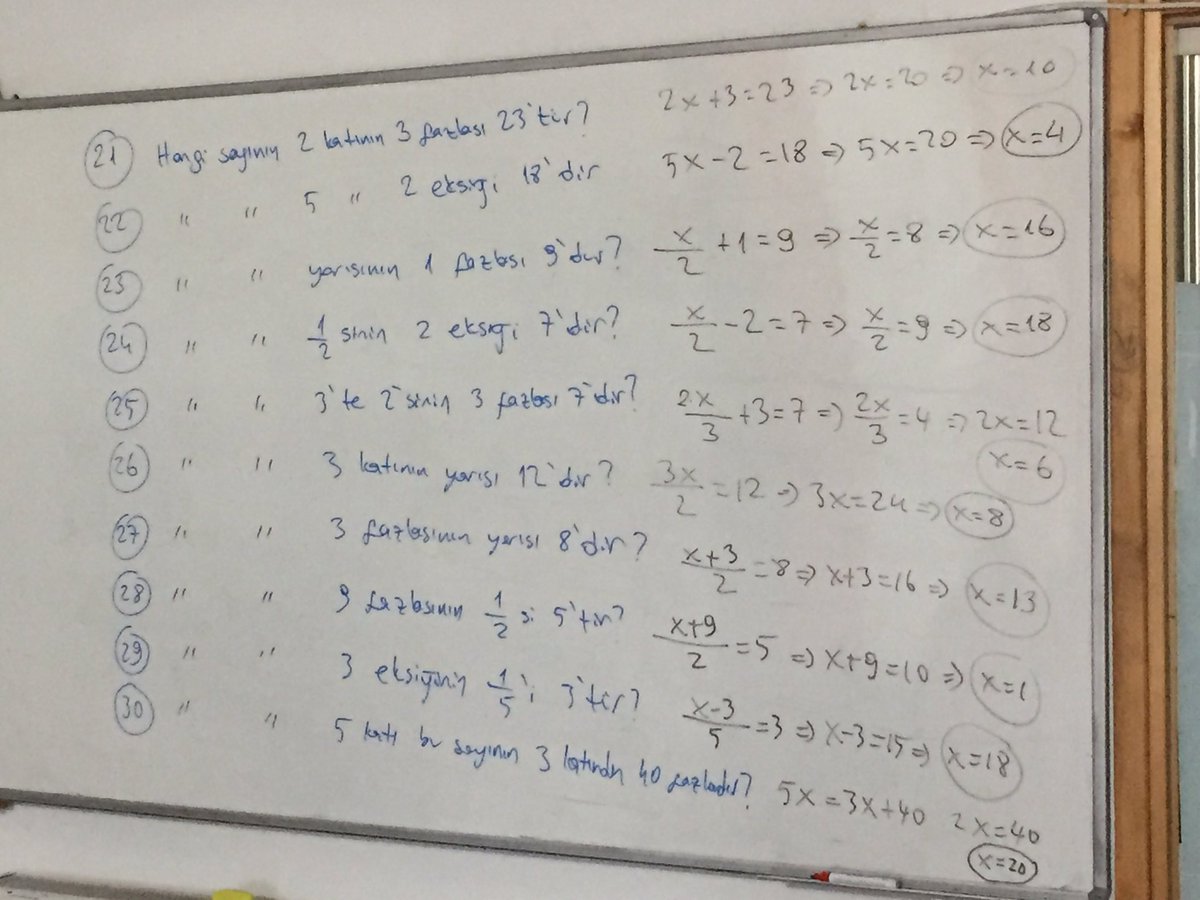 21 Hangi sayının 2 katının 3 fazlası 23'tür? 2x+3=23 ⇒ 2x=20 ⇒ x=10
22 " " 5 " 2 eksiği 18'dir 5x-2=18 ⇒ 5x=20 ⇒ x=4
23 " " yarısının 1 fazlası 9'dur? x/2 +1=9 ⇒ x/2=8 ⇒ x=16
24 " " 1/2 sinin 2 eksiği 7'dir? x/2 -2=7 ⇒ x/2=9 ⇒ x=18
25 " " 3'te 2'sinin 3 fazlası 7'dir? 2x/3 +3=7 ⇒ 2x/3=4 ⇒ 2x=12
x=6
26 " " 3 katının yarısı 12'dir? 3x/2=12 ⇒ 3x=24 ⇒ x=8
27 " " 3 fazlasının yarısı 8'dir? x+3/2=8 ⇒ x+3=16 ⇒ x=13
28 " " 9 fazlasının 1/2 si 5'tir? x+9/2=5 ⇒ x+9=10 ⇒ x=1
29 " " 3 eksiğinin 1/5'i 3'tür? x-3/5=3 ⇒ x-3=15 ⇒ x=18
30 " " 5 katı bu sayının 3 katından 40 fazladır? 5x=3x+40 2x=40
x=20